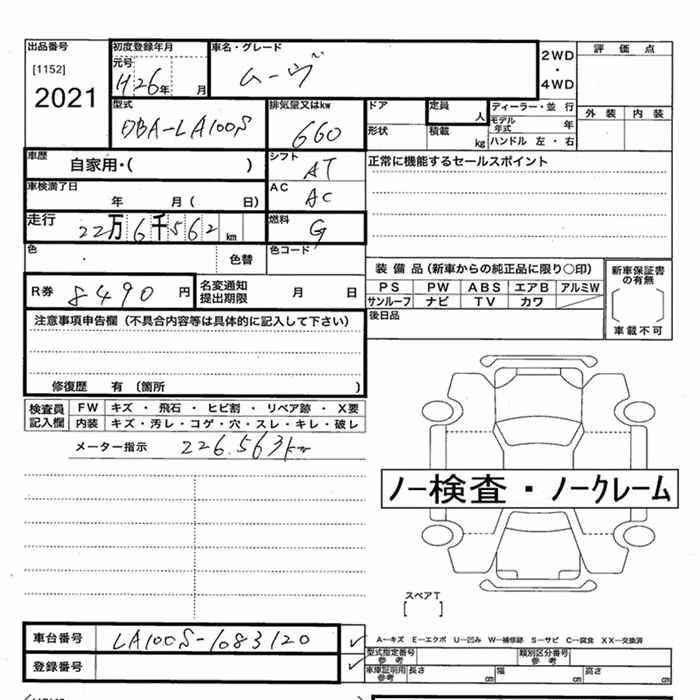 出品番号 初度登録年月 車名・グレード 2WD・4WD 評価点
[1152] 元号 H26年 月 ムーヴ
2021 外装 内装
型式 DBA-LA100S 排気量又はkw 660 ドア 定員 人 ディーラー・並行
形状 積載 kg モデル年式 年
ハンドル 左・右
車歴 自家用・( ) シフト AT 正常に機能するセールスポイント
車検満了日 年 月( 日) AC AC
走行 22万6千562km 燃料 G
色 色替 色コード
装備品(新車からの純正品に限り○印) 新車保証書の有無
R券 8490円 名変通知提出期限 月 日 PS PW ABS エアB アルミW
サンルーフ ナビ TV カワ
後日品 車載不可
注意事項申告欄(不具合内容等は具体的に記入して下さい)
修復歴 有(箇所 )
検査員記入欄 FW キズ・飛石・ヒビ割・リペア跡・X要
内装 キズ・汚レ・コゲ・穴・スレ・キレ・破レ
メーター指示 226.563km
ノー検査・ノークレーム
スペアT
[ ]
車台番号 LA100S-1083120 ✓ A-キズ E-エクボ U-凹み W-補修跡 S-サビ C-腐食 XX-交換済
登録番号 ✓ 型式指定番号 参考 類別区分番号 参考
車庫証明用 参考 長さ cm 幅 cm 高さ cm